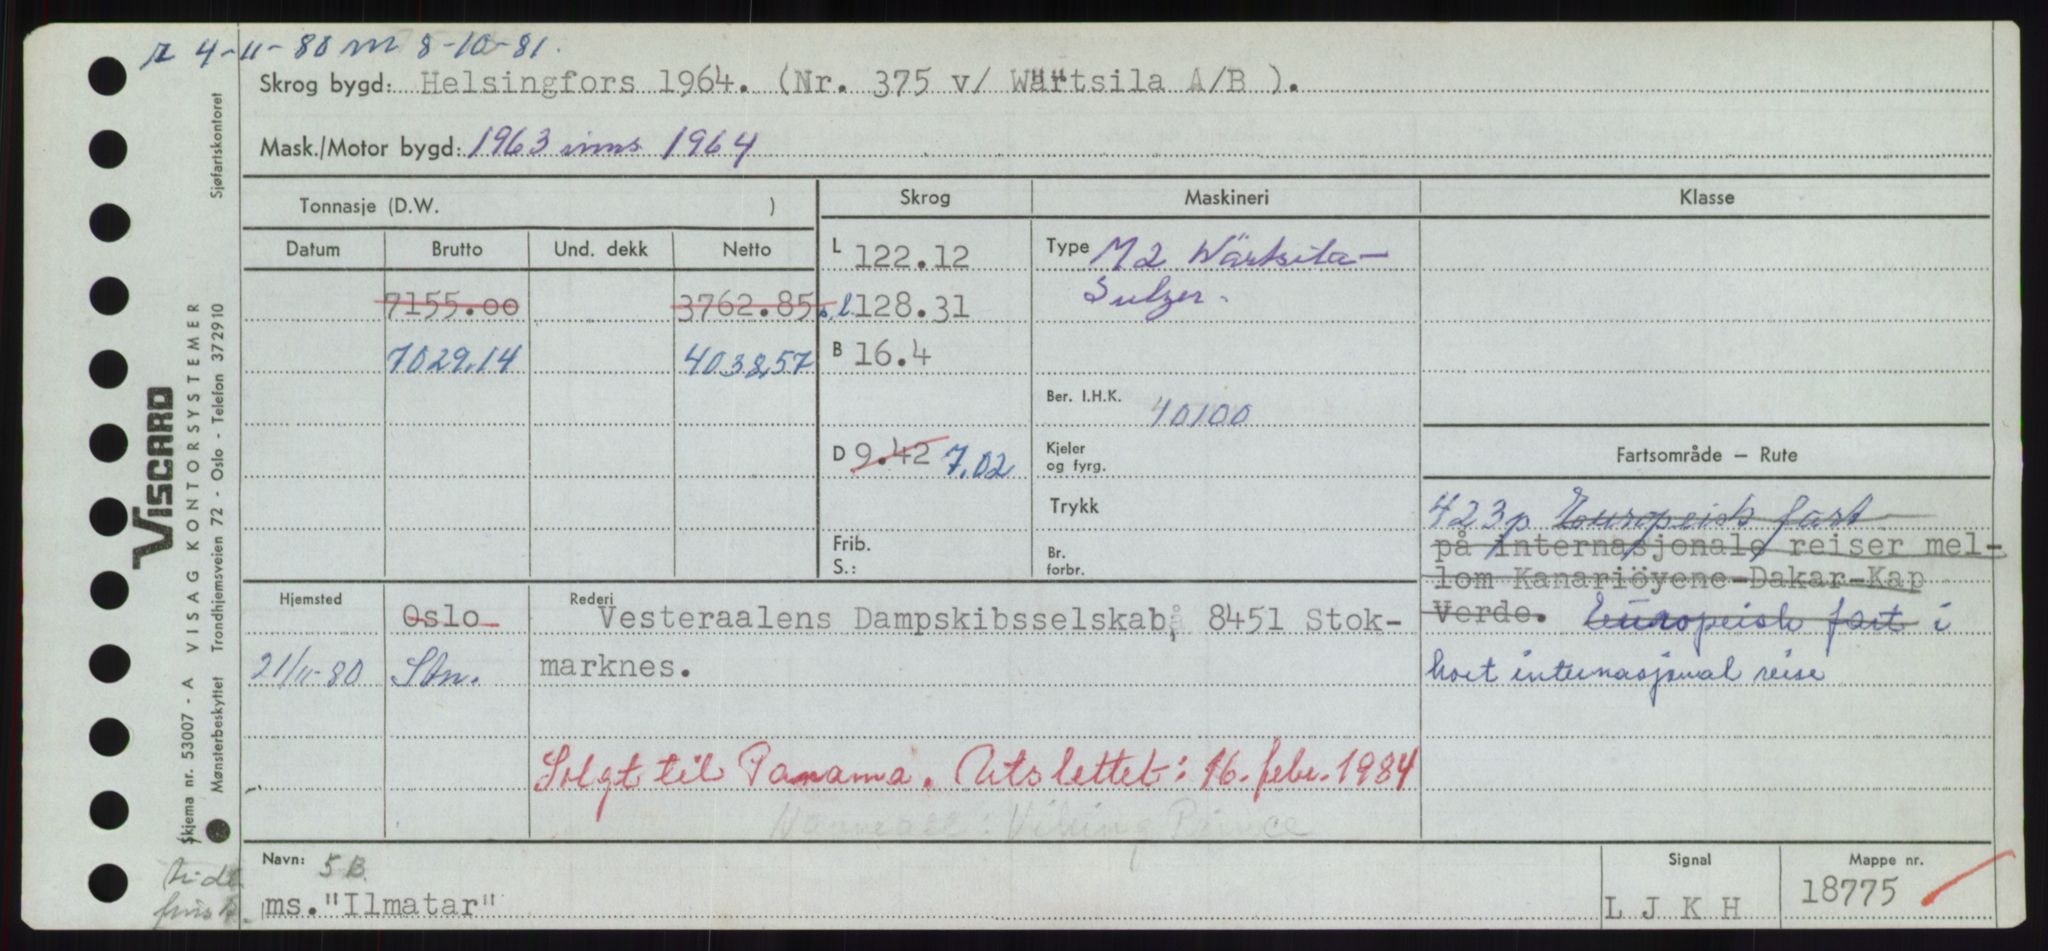 r 4-11-80 m 8-10-81.
Skrog bygd: Helsingfors 1964. (Nr. 375 v/ Wärtsila A/B ).
Mask./Motor bygd: 1963 inns 1964
Tonnasje (D.W. )
Skrog
Maskineri
Klasse
Datum
Brutto
Und. dekk
Netto
L 122.12
Type M2 Wärtsila-
7155.00
3762.85
l 128.31
Sulzer.
7029,14
4038,57
B 16.4
Ber. I.H.K. 10100
D 9.42 7,02
Kjeler
og fyrg.
Fartsområde – Rute
Trykk
423p Europeisk fart
på internasjonale reiser mel-
lom Kanariöyene-Dakar-Kap
Verde. Europeisk fart i
kort internasjonal reise
Frib.
S.:
Br.
forbr.
Hjemsted
Oslo
Rederi
Vesteraalens Dampskibsselskab, 8451 Stok-
21/11-80 Skn.
marknes.
Solgt til Panama. Utslettet: 16. febr. 1984
Viking Prince
Navn: 5 B.
ms."Ilmatar"
Signal
L J K H
Mappe nr.
18775
VISCARD
Skjema nr. 53007 - A VISAG KONTORSYSTEMER
Mønsterbeskyttet Trondhjemsveien 72 - Oslo - Telefon 372910
Sjøfartskontoret